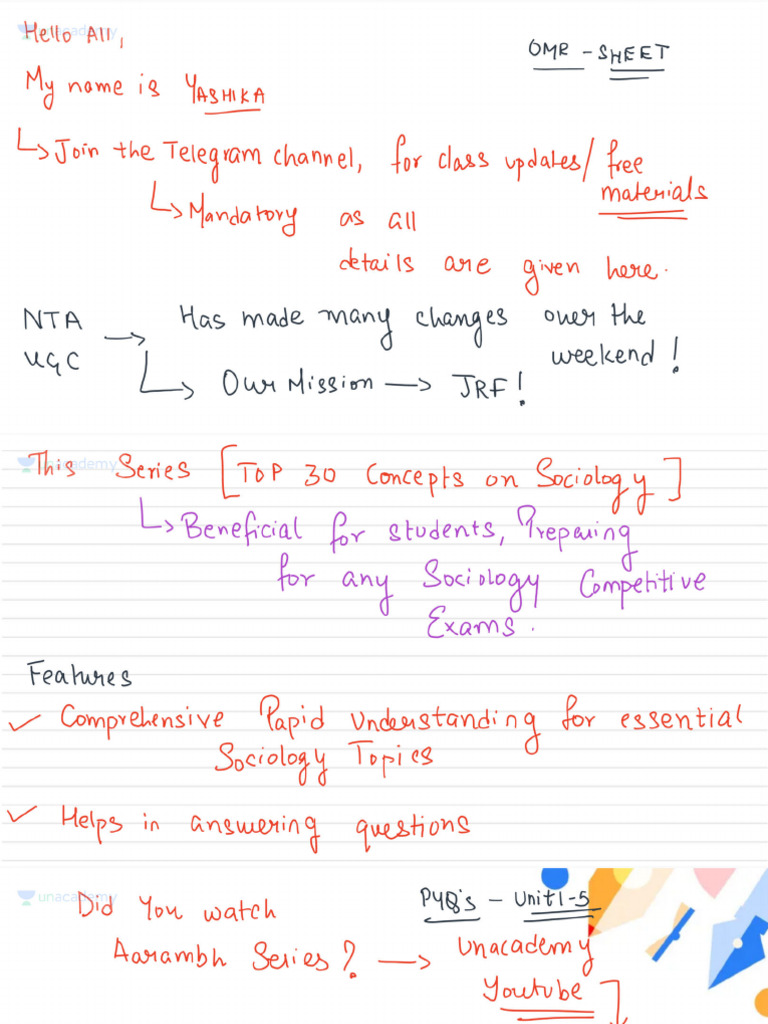 unacademy
Hello All,
OMR - SHEET
My name is YASHIKA
↳ Join the Telegram channel, for class updates/ free
materials
↳ Mandatory as all
details are given here.
NTA → Has made many changes over the
UGC weekend!
↳ Our Mission → JRF!
unacademy
This Series [TOP 30 Concepts on Sociology]
↳ Beneficial for students, Preparing
for any Sociology Competitive
Exams.
Features
✓ Comprehensive Rapid Understanding for essential
Sociology Topics
✓ Helps in answering questions
unacademy
Did You watch
PYQ's - Unit 1-5
Aarambh Series? → Unacademy
Youtube